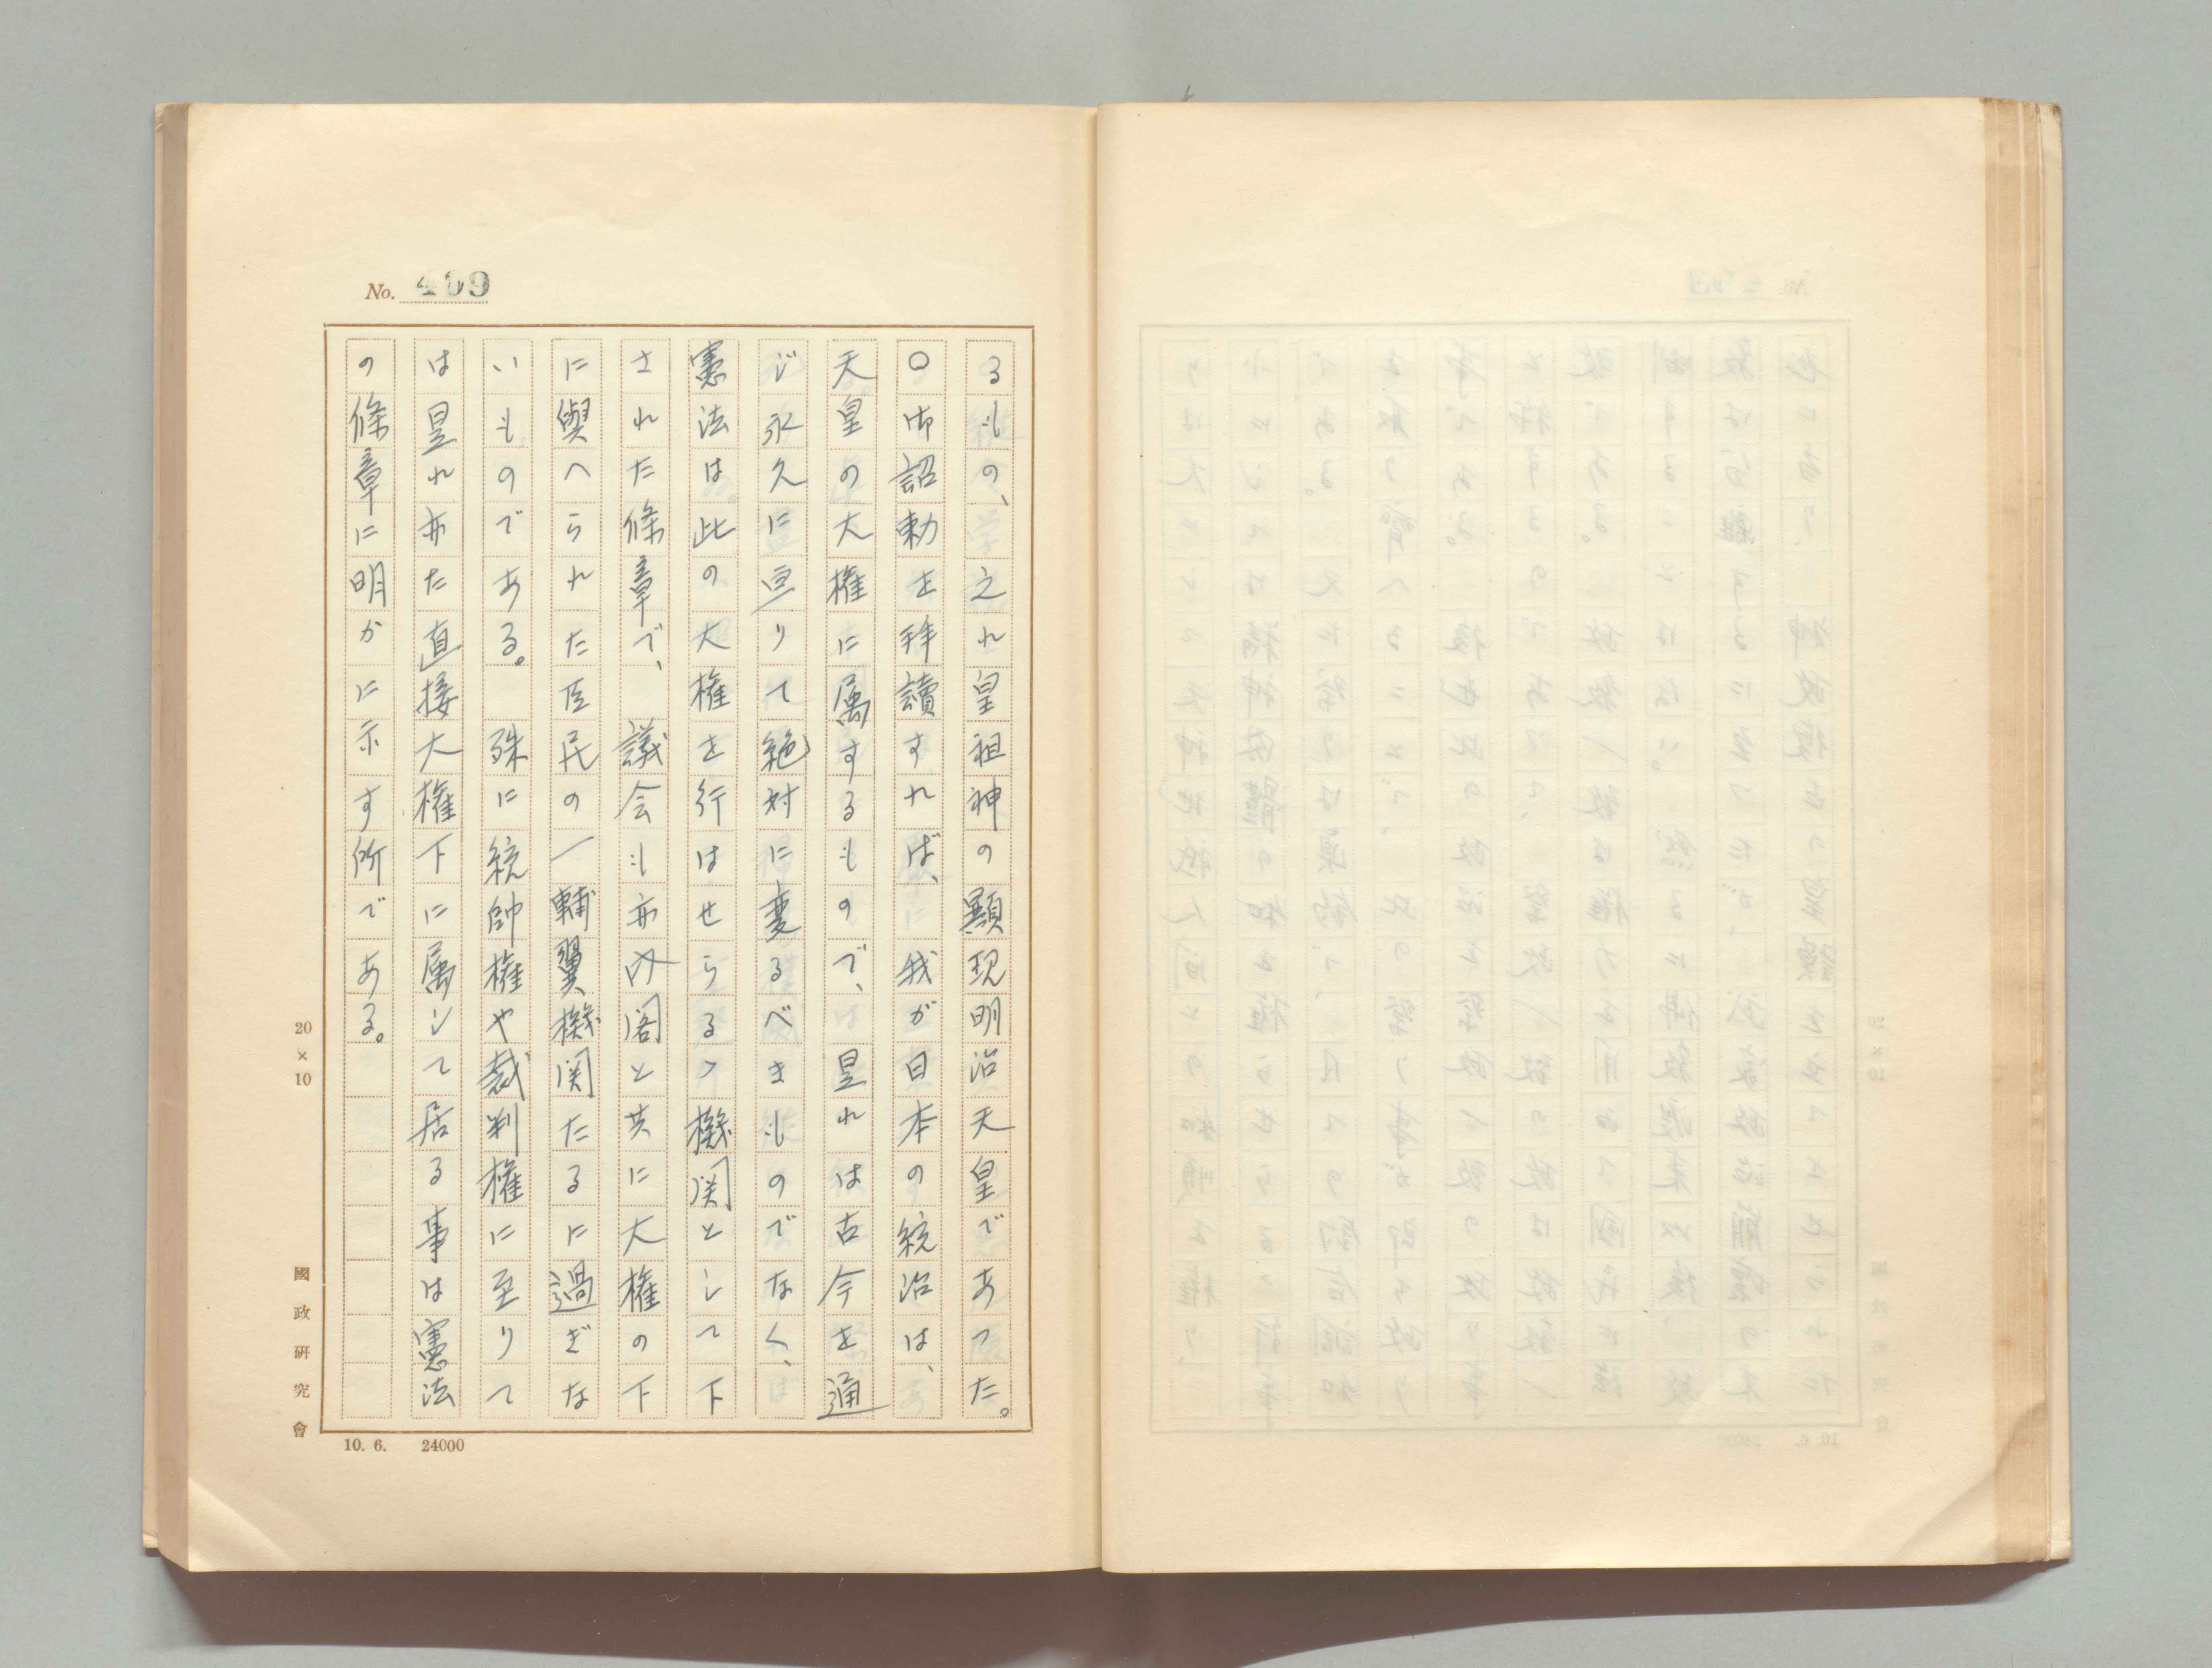 No. 409
るもの、之れ皇祖神の顯現明治天皇であつた。
〇御詔勅を拝讀すれば、我が日本の統治は、
天皇の大権に属するもので、是れは古今を通
じ永久に亘りて絶対に変るべきものでなく、
憲法は此の大権を行はせらるゝ機関として下
された條章で、議会も亦内閣と共に大権の下
に與へられた臣民の一輔翼機関たるに過ぎな
いものである。殊に統帥権や裁判権に至りて
は是れ亦た直接大権下に属して居る事は憲法
の條章に明かに示す所である。
20×10
國政研究會
10. 6. 24000